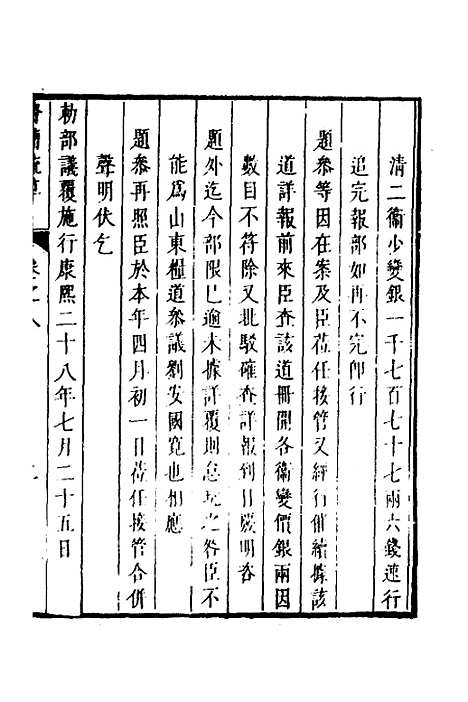 清二衞少變銀一千七百七十七兩六錢速行
追完報部如再不完卽行
題叅等因在案及臣莅任接管又經行催結據該
道詳報前來臣查該道冊開各衞變價銀兩因
數目不符除又批駁確查詳報到日覈明咨
題外迄今部限已逾未據詳覆則怠玩之咎臣不
能爲山東糧道叅議劉安國寛也相應
題叅再照臣於本年四月初一日莅任接管合併
聲明伏乞
勅部議覆施行康熙二十八年七月二十五日
卷之八